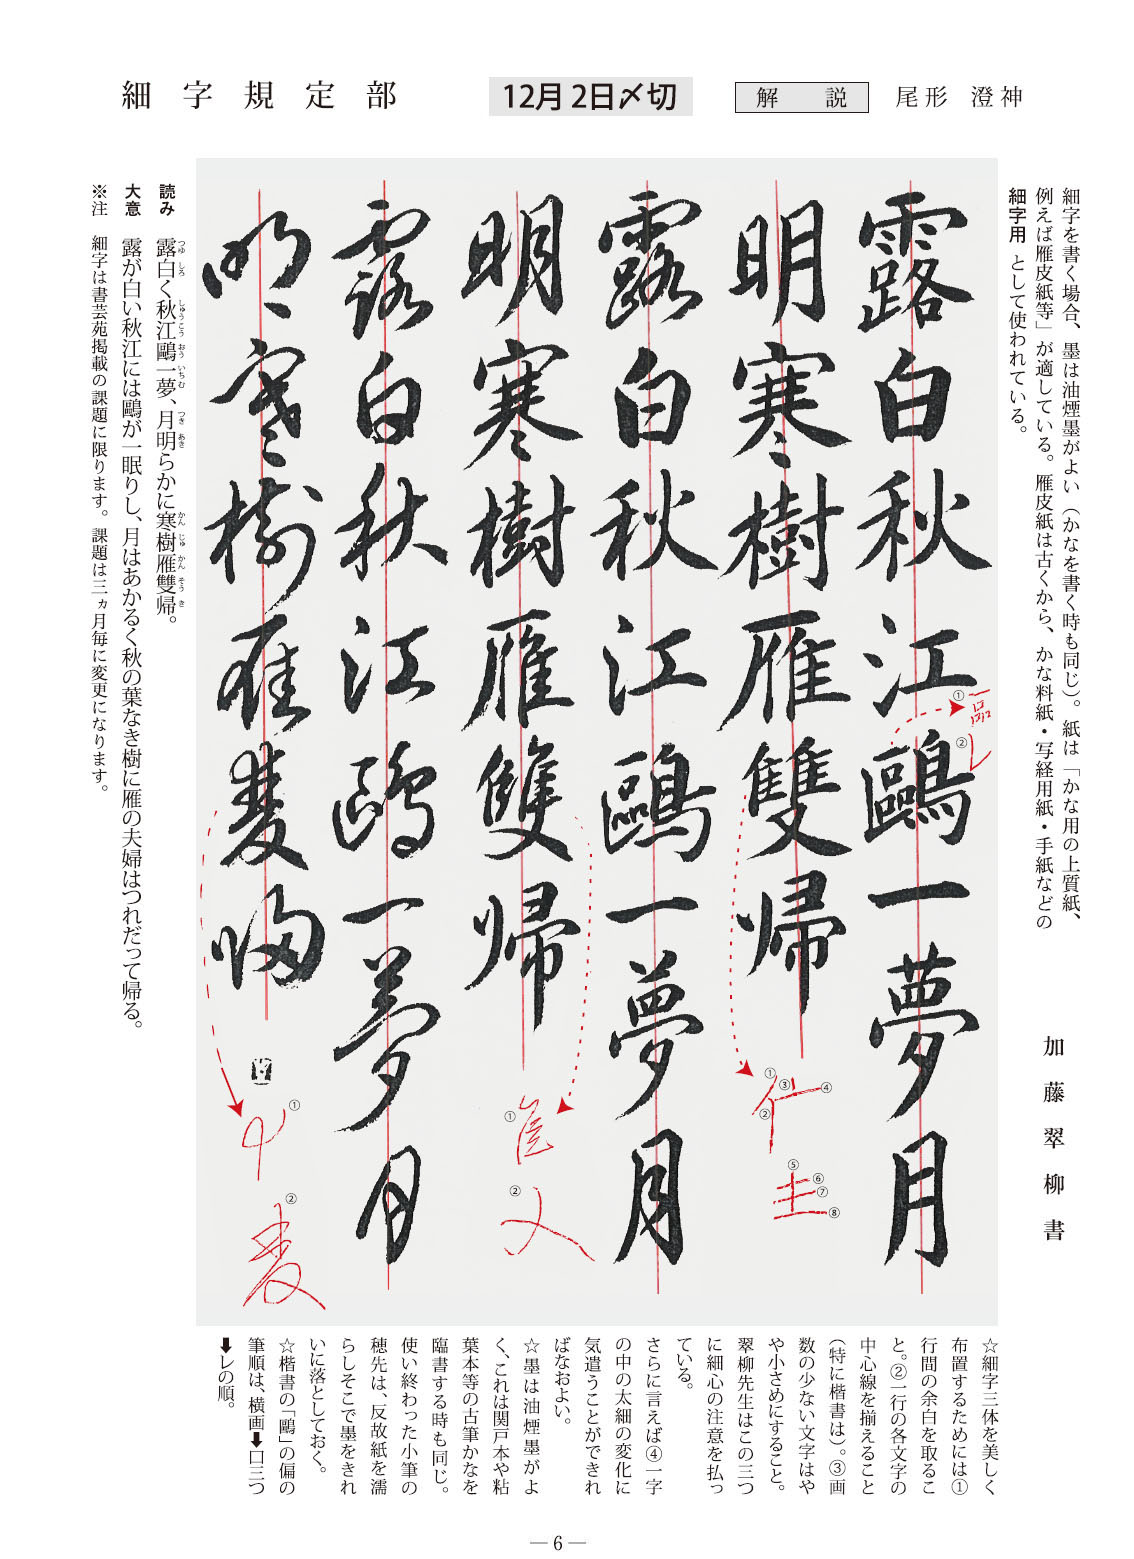 細字規定部
12月2日〆切
解説
尾形 澄神
細字を書く場合、墨は油煙墨がよい（かなを書く時も同じ）。紙は「かな用の上質紙、
例えば雁皮紙等」が適している。雁皮紙は古くから、かな料紙・写経用紙・手紙などの
細字用 として使われている。
加藤翠柳書
露白秋江鷗一夢月
明寒樹雁雙帰
露白秋江鷗一夢月
明寒樹雁雙帰
露白秋江鷗一夢月
明寒樹雁雙帰
読み 露白く秋江鷗一夢、月明らかに寒樹雁雙帰。
つゆ しろ しゅうこう おう いちむ つき あき かん じゅ かん そう き
大意 露が白い秋江には鷗が一眠りし、月はあかるく秋の葉なき樹に雁の夫婦はつれだって帰る。
※注 細字は書芸苑掲載の課題に限ります。課題は三ヵ月毎に変更になります。
① ②
① ② ③ ④ ⑤ ⑥ ⑦ ⑧
① ②
① ②
☆細字三体を美しく
布置するためには①
行間の余白を取るこ
と。②一行の各文字の
中心線を揃えること
（特に楷書は）。③画
数の少ない文字はや
や小さめにすること。
翠柳先生はこの三つ
に細心の注意を払っ
ている。
さらに言えば④一字
の中の太細の変化に
気遣うことができれ
ばなおよい。
☆墨は油煙墨がよ
く、これは関戸本や粘
葉本等の古筆かなを
臨書する時も同じ。
使い終わった小筆の
穂先は、反故紙を濡
らしそこで墨をきれ
いに落としておく。
☆楷書の「鷗」の偏の
筆順は、横画➡口三つ
➡レの順。
― 6 ―